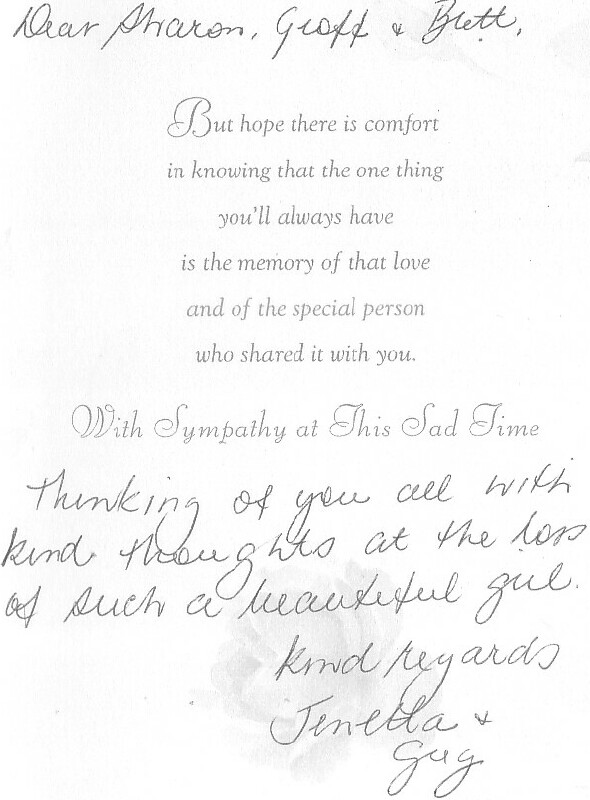 Dear Sharon, Geoff & Brett,
But hope there is comfort
in knowing that the one thing
you'll always have
is the memory of that love
and of the special person
who shared it with you.
With Sympathy at This Sad Time
Thinking of you all with
kind thoughts at the loss
of such a beautiful girl.
kind regards
Jenetta &
Greg